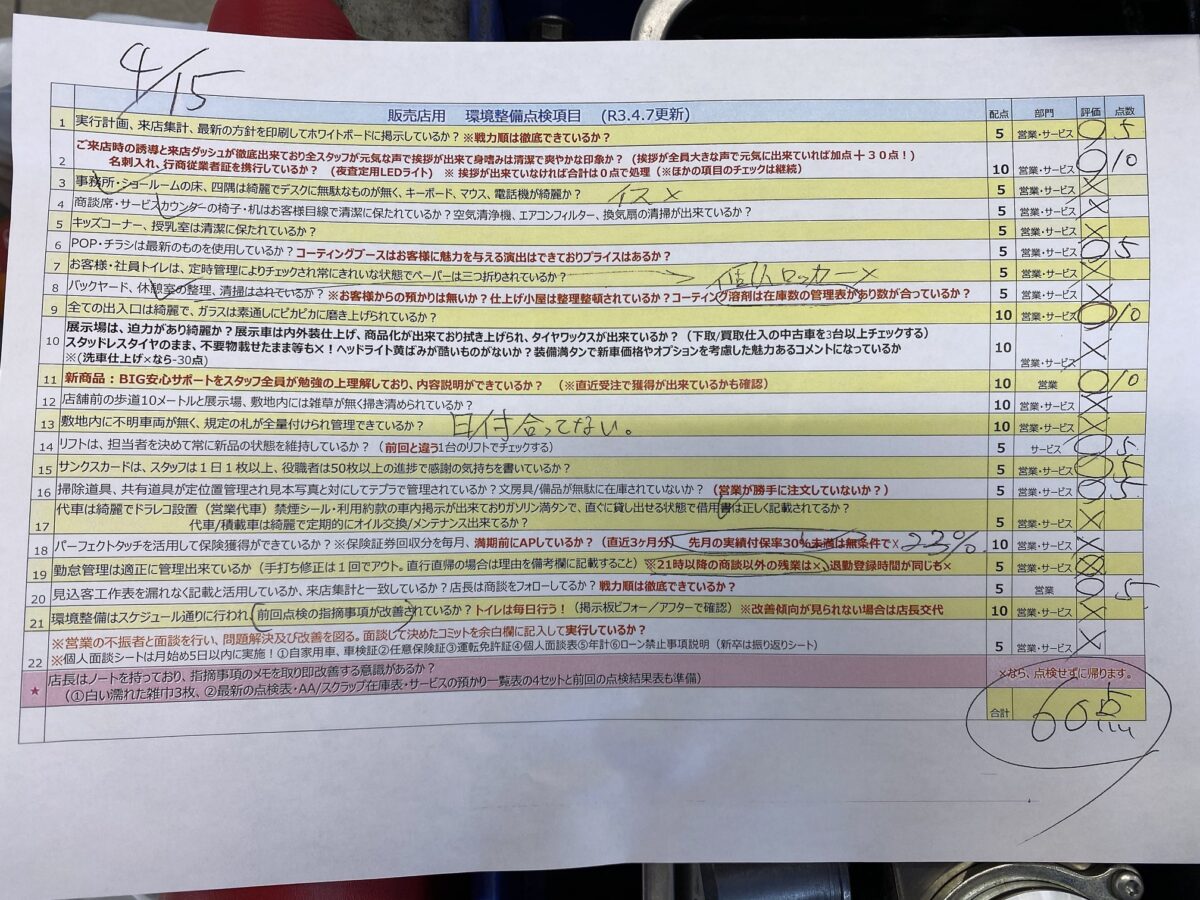 4/15
販売店用 環境整備点検項目 (R3.4.7更新) 配点 部門 評価 点数
1 実行計画、来店集計、最新の方針を印刷してホワイトボードに掲示しているか? ※戦力順は徹底できているか? 5 営業・サービス ○ 5
2 ご来店時の誘導と来店ダッシュが徹底出来ており全スタッフが元気な声で挨拶が出来て身嗜みは清潔で爽やかな印象か? (挨拶が全員大きな声で元気に出来ていれば加点+30点!)
名刺入れ、行商従業者証を携行しているか? (夜査定用LEDライト) ※ 挨拶が出来ていなければ合計は0点で処理 (※ほかの項目のチェックは継続) 10 営業・サービス ○ 10
3 事務所・ショールームの床、四隅は綺麗でデスクに無駄なものが無く、キーボード、マウス、電話機が綺麗か? イス× 5 営業・サービス ×
4 商談席・サービスカウンターの椅子・机はお客様目線で清潔に保たれているか?空気清浄機、エアコンフィルター、換気扇の清掃が出来ているか? 5 営業・サービス ×
5 キッズコーナー、授乳室は清潔に保たれているか? 5 営業・サービス ×
6 POP・チラシは最新のものを使用しているか?コーティングブースはお客様に魅力を与える演出はできておりプライスはあるか? 5 営業・サービス ○ 5
7 お客様・社員トイレは、定時管理によりチェックされ常にきれいな状態でペーパーは三つ折りされているか? 個人ロッカー× 5 営業・サービス ×
8 バックヤード、休憩室の整理、清掃はされているか? ※お客様からの預かりは無いか?仕上げ小屋は整理整頓されているか?コーティング溶剤は在庫数の管理表があり数が合っているか? 5 営業・サービス ×
9 全ての出入口は綺麗で、ガラスは素通しにピカピカに磨き上げられているか? 10 営業・サービス ○ 10
10 展示場は、迫力があり綺麗か?展示車は内外装仕上げ、商品化が出来ており拭き上げられ、タイヤワックスが出来ているか? (下取/買取仕入の中古車を3台以上チェックする)
スタッドレスタイヤのまま、不要物載せたまま等も×!ヘッドライト黄ばみが酷いものがないか?装備満タンで新車価格やオプションを考慮した魅力あるコメントになっているか
※(洗車仕上げ×なら-30点) 10 営業・サービス ×
11 新商品:BIG安心サポートをスタッフ全員が勉強の上理解しており、内容説明ができているか? (※直近受注で獲得が出来ているかも確認) 10 営業 ○ 10
12 店舗前の歩道10メートルと展示場、敷地内には雑草が無く掃き清められているか? 10 営業・サービス ×
13 敷地内に不明車両が無く、規定の札が全量付けられ管理できているか? 日付合ってない。 10 営業・サービス ×
14 リフトは、担当者を決めて常に新品の状態を維持しているか? (前回と違う1台のリフトでチェックする) 5 サービス ○ 5
15 サンクスカードは、スタッフは1日1枚以上、役職者は50枚以上の進捗で感謝の気持ちを書いているか? 5 営業・サービス ○ 5
16 掃除道具、共有道具が定位置管理され見本写真と対にしてテプラで管理されているか?文房具/備品が無駄に在庫されていないか? (営業が勝手に注文していないか?) 5 営業・サービス ○ 5
17 代車は綺麗でドラレコ設置 (営業代車) 禁煙シール・利用約款の車内掲示が出来ておりガソリン満タンで、直ぐに貸し出せる状態で借用書は正しく記載されてるか?
代車/積載車は綺麗で定期的にオイル交換/メンテナンス出来てるか? 5 営業・サービス ×
18 パーフェクトタッチを活用して保険獲得ができているか?※保険証券回収分を毎月、満期前にAPしているか? (直近3ヶ月分) 先月の実績付保率30%未満は無条件で× 23%. 10 営業・サービス ×
19 勤怠管理は適正に管理出来ているか (手打ち修正は1回でアウト。直行直帰の場合は理由を備考欄に記載すること) ※21時以降の商談以外の残業は×、退勤登録時間が同じも× 5 営業・サービス
20 見込客工作表を漏れなく記載と活用しているか、来店集計と一致しているか?店長は商談をフォローしてるか?戦力順は徹底できているか? 5 営業 ○ 5
21 環境整備はスケジュール通りに行われ、前回点検の指摘事項が改善されているか?トイレは毎日行う! (掲示板ビフォー/アフターで確認) ※改善傾向が見られない場合は店長交代 10 営業・サービス ×
22 ※営業の不振者と面談を行い、問題解決及び改善を図る。面談して決めたコミットを余白欄に記入して実行しているか?
※個人面談シートは月始め5日以内に実施!①自家用車、車検証②任意保険証③運転免許証④個人面談表⑤年計⑥ローン禁止事項説明 (新卒は振り返りシート) 5 営業・サービス ×
★ 店長はノートを持っており、指摘事項のメモを取り即改善する意識があるか?
(①白い濡れた雑巾3枚、②最新の点検表・AA/スクラップ在庫表・サービスの預かり一覧表の4セットと前回の点検結果表も準備) ×なら、点検せずに帰ります。
合計